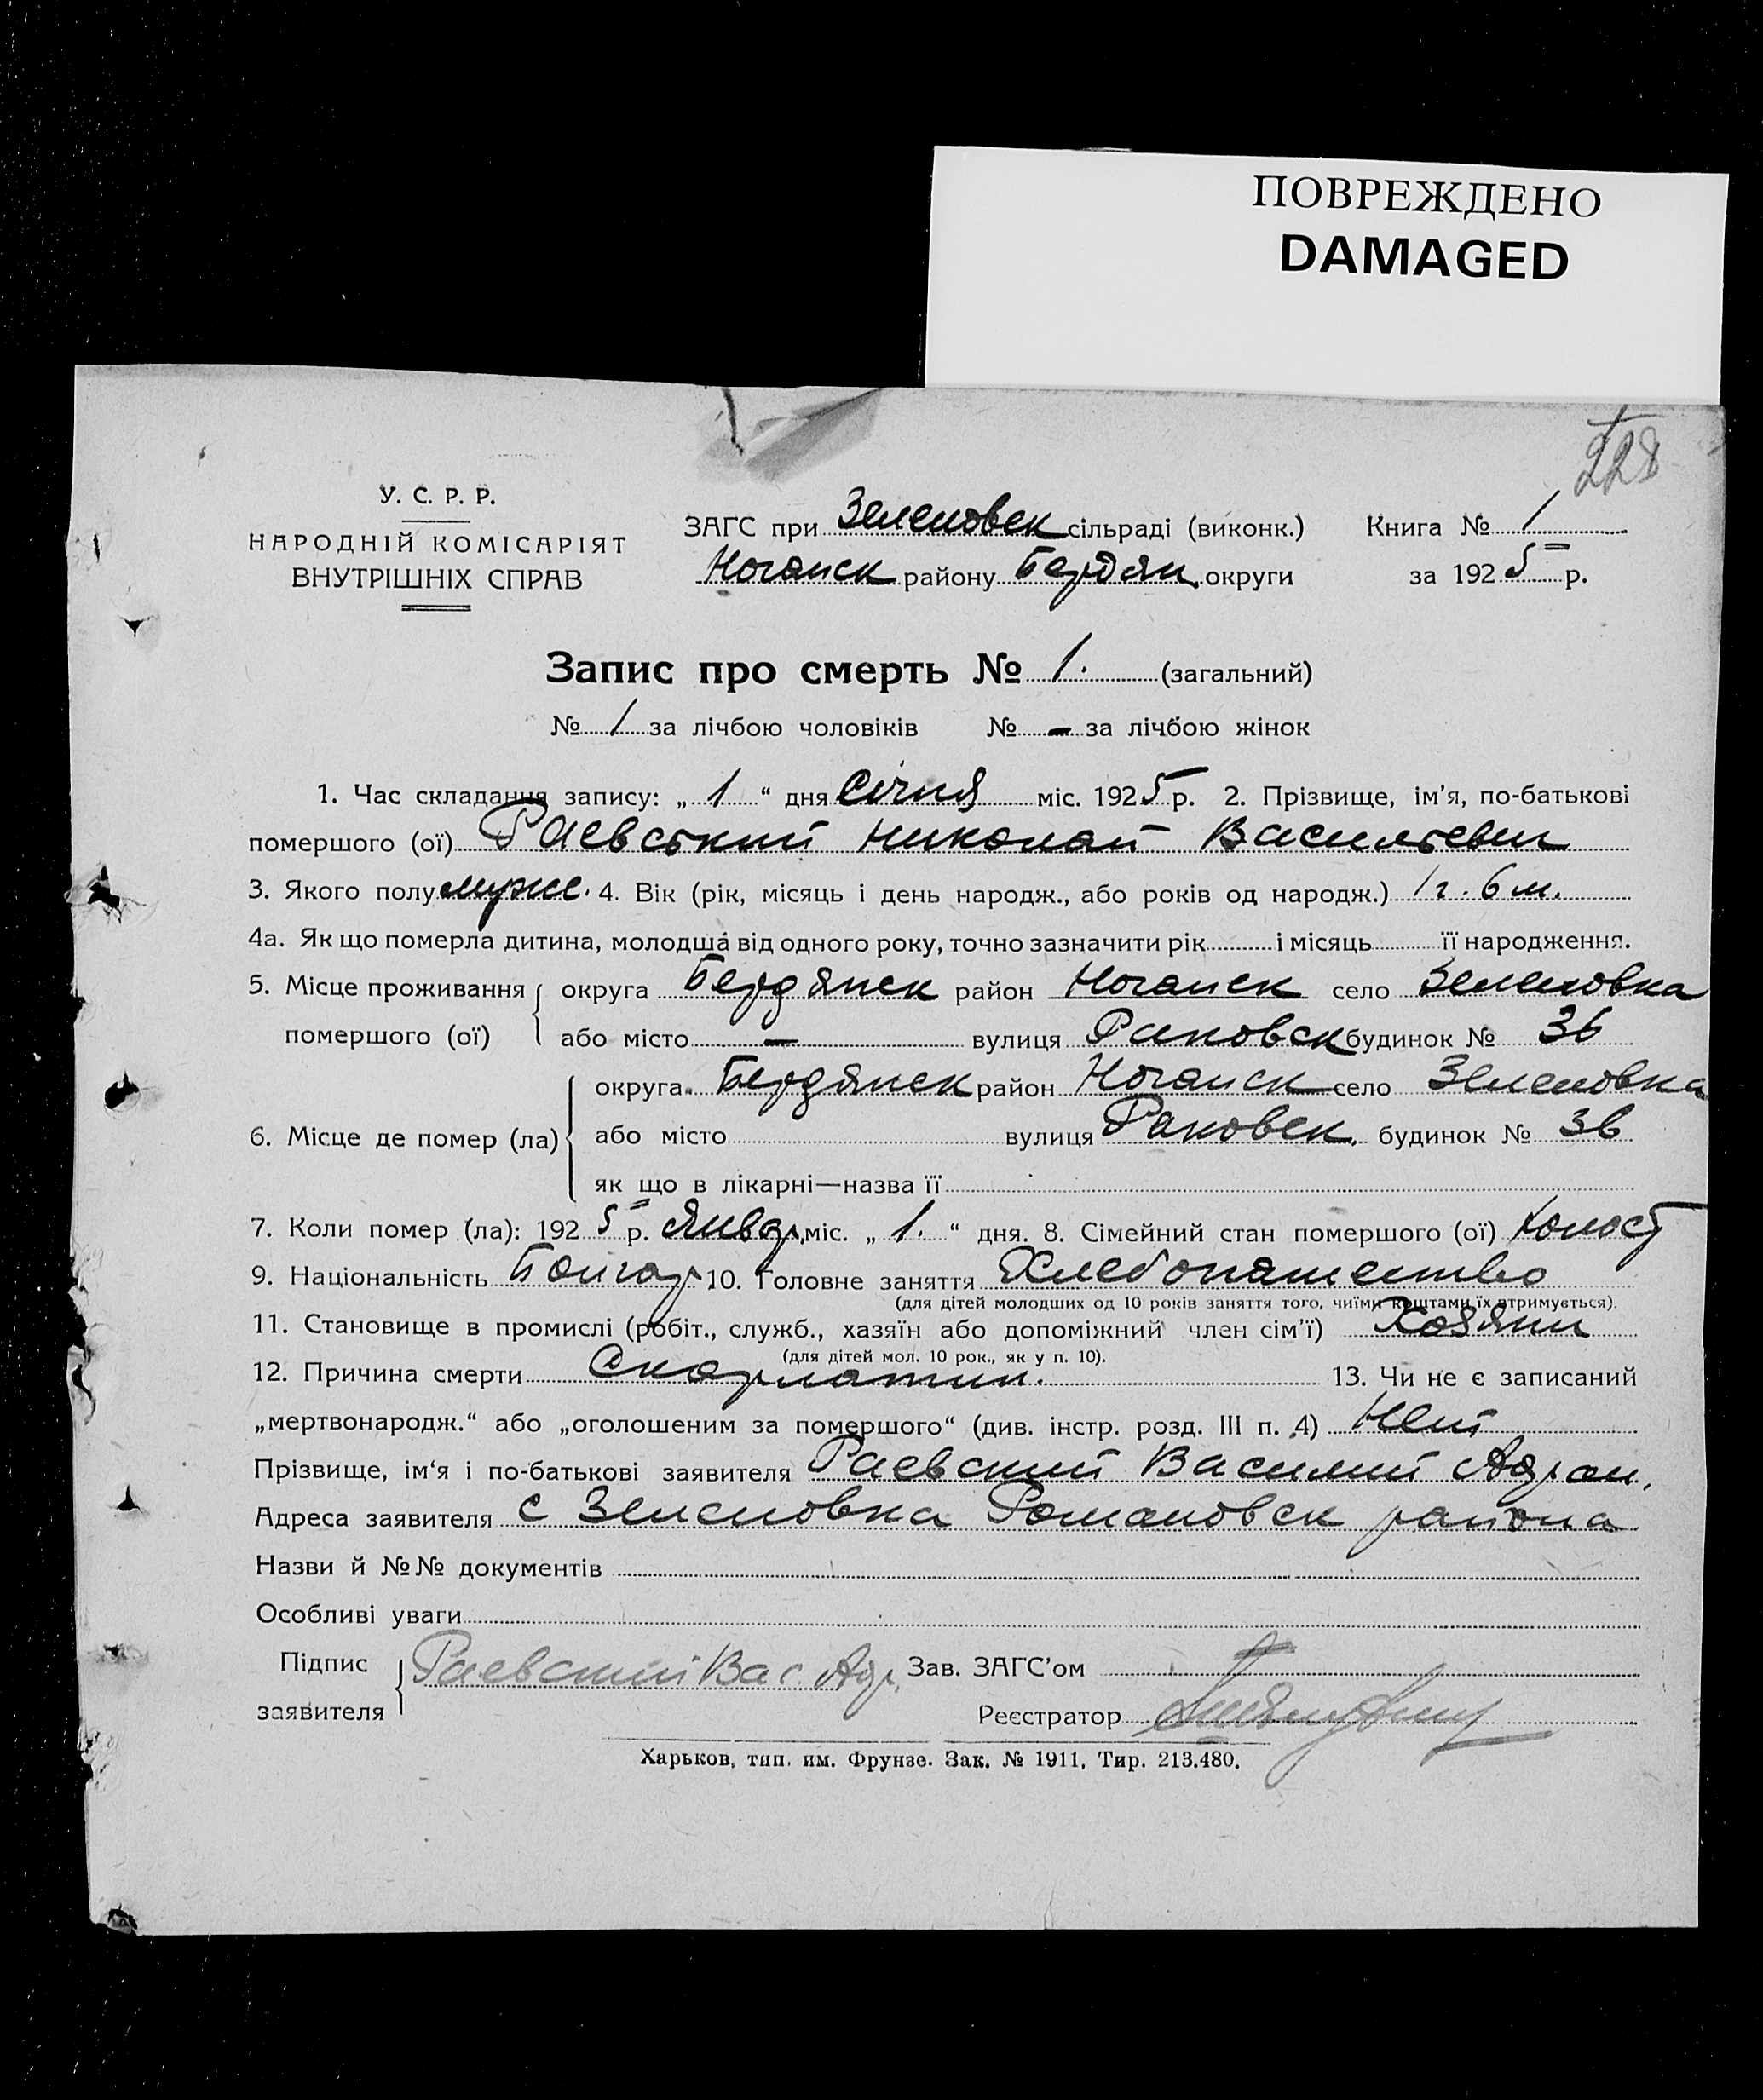 ПОВРЕЖДЕНО
DAMAGED
228
У. С. Р. Р.
НАРОДНІЙ КОМІСАРІЯТ
ВНУТРІШНІХ СПРАВ
ЗАГС при Зеленовск сільраді (виконк.)
Ногайск району Бердян. округи
Книга № 1
за 1925 р.
Запис про смерть № 1. (загальний)
№ 1 за лічбою чоловіків № - за лічбою жінок
1. Час складання запису: „ 1 “ дня Січня міс. 1925 р. 2. Прізвище, ім’я, по-батькові
помершого (ої) Раевський Николай Васильевич
3. Якого полу мужс. 4. Вік (рік, місяць і день народж., або років од народж.) 1 г. 6 м.
4а. Як що померла дитина, молодша від одного року, точно зазначити рік і місяць її народження.
5. Місце проживання округа Бердянск район Ногайск село Зеленовка
помершого (ої) або місто - вулиця Раковск будинок № 36
округа Бердянск район Ногайск село Зеленовка
6. Місце де помер (ла) або місто вулиця Раковск. будинок № 36
як що в лікарні—назва її
7. Коли помер (ла): 1925 р. Январ. міс. „ 1. “ дня. 8. Сімейний стан помершого (ої) холост
9. Національність Болгар 10. Головне заняття Хлебопашество
(для дітей молодших од 10 років заняття того, чиїми коштами їх втримується).
11. Становище в промислі (робіт., служб., хазяїн або допоміжний член сім’ї) Хозяин
(для дітей мол. 10 рок., як у п. 10).
12. Причина смерти Скарлатин. 13. Чи не є записаний
„мертвонародж.“ або „оголошеним за помершого“ (див. інстр. розд. III п. 4) Нет
Прізвище, ім‘я і по-батькові заявителя Раевский Василий Адам.
Адреса заявителя с Зеленовка Романовск района
Назви й №№ документів
Особливі уваги
Підпис заявителя Раевский Вас. Ад. Зав. ЗАГС’ом
Реєстратор
Харьков, тип. им. Фрунзе. Зак. № 1911, Тир. 213.480.